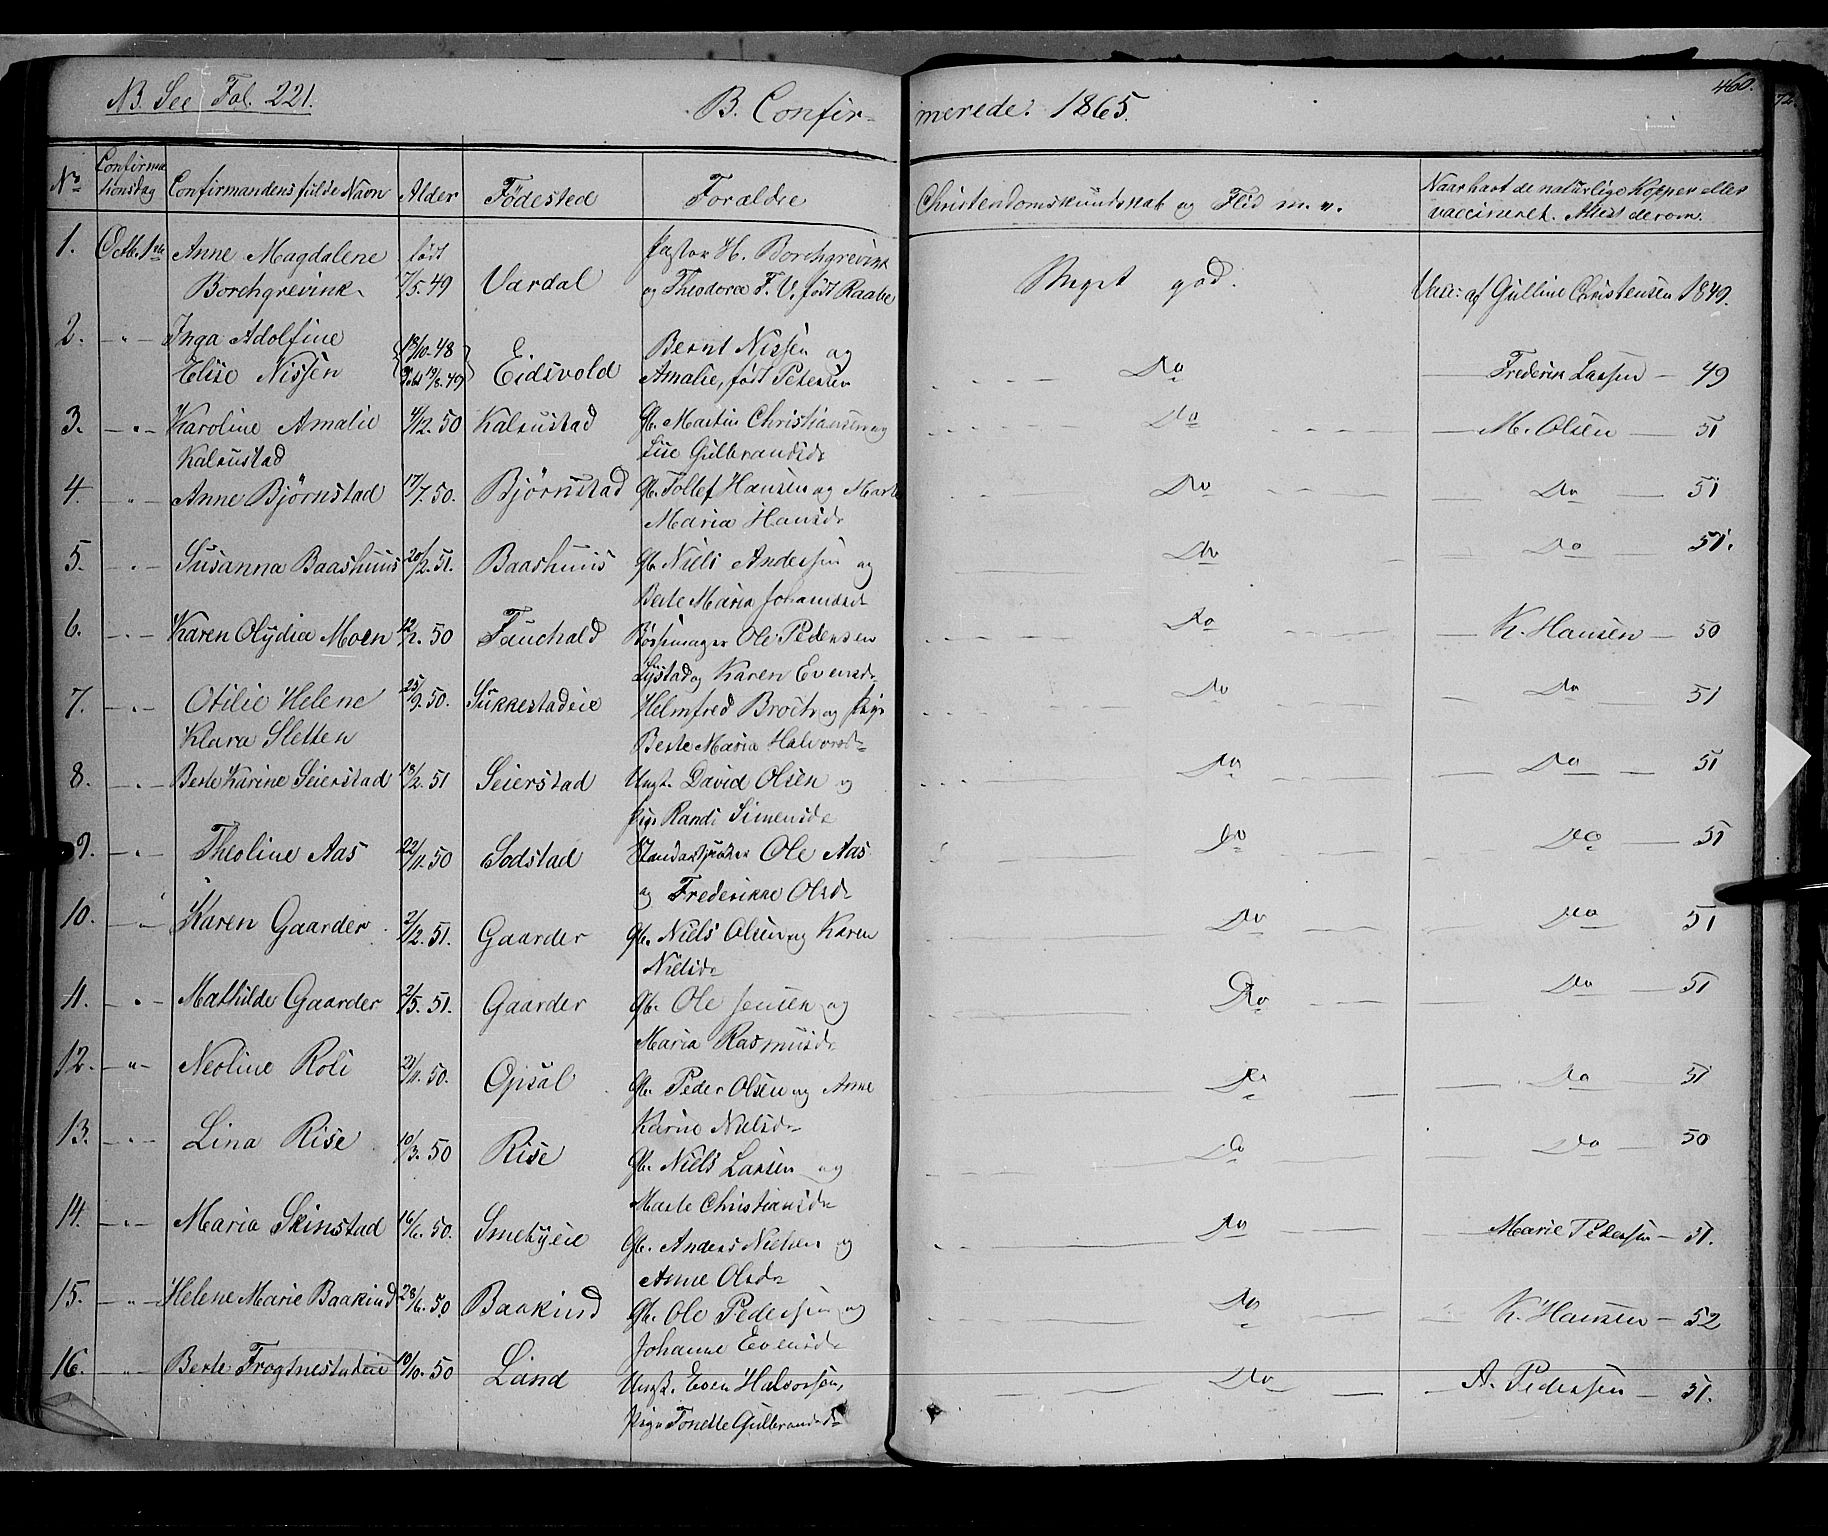 NB. See Fol. 221.
B. Confirmerede: 1865.
460.
72.
No
Confirmationsdag
Confirmandens fulde Navn
Alder
Födested
Forældre
Christendomskundskab og Flid m. v.
Naar havt de naturlige Kopper eller
vaccineret. Attest derom.
1. Octb. 1ste Anne Magdalene født Pastor H. Borchgrevink
Borchgrevink 17/5. 49 Vardal og Theodora F. V. født Raabe Meget god. Vacc: af Gulline Christensen 1849.
2. - " - Inga Adolfine 18/10. 48 Bernt Nissen og
Elise Nissen 19/8. 49 Eidsvold Amalie, født Petersen Do Frederik Larsen - 49
3. - " - Karoline Amalie 4/12. 50 Kalrustad Gb. Martin Christiansen og Do M. Olsen 51
Kalrustad Lise Gulbrandsd.
4. " - Anne Bjørnstad 17/7. 50. Bjørnstad Gb. Tollef Hansen og Marte Do Do 51
Maria Hansd.
5. - " - Susanna Baashuus 20/2. 51. Baashuus Gb. Niels Andersen og Do Do 51.
Berte Maria Johannesd.
6. - " - Karen Olydia Moen 12/2. 50 Fauchald Bøssemager Ole Pedersen Do K. Hansen - 50
Lystad og Karen Evensd.
7. - " - Otilie Helene 25/9. 50. Sukkestadeie Helmfred Broch og Pige Do Do 51
Klara Sletten Berte Maria Halvorsd.
8. - " - Berte Karine Seierstad 13/2. 51 Seierstad Ungk. David Olsen og Do Do 51
Pige Randi Simensd.
9. - " - Theoline Aas 22/11. 50 Sodstad Standartjunker Ole Aas Do Do 51
og Frederikke Olsd.
10. - " Karen Gaarder 2/12. 51. Gaarder Gb. Niels Olsen og Karen Do Do 51
Nielsd.
11. - " - Mathilde Gaarder 2/5. 51. Gaarder Gb. Ole Jensen og Do Do 51
Maria Rasmusd.
12. - " - Neoline Roli 21/11. 50. Opsal Gb. Peder Olsen og Anne Do Do 51
Karine Nielsd.
13. - " - Lina Rise 10/3. 50 Rise Gb. Niels Larsen og Do Do 50
Marte Christiansd.
14. - " - Maria Skinstad 16/6. 50. Smebyeie Gb. Anders Nielsen og Do Marie Pedersen - 51.
Anne Olsd.
15. - " - Helene Marie Baakind 28/6. 50 Baakind Gb. Ole Pedersen og Do K. Hansen - 52
Johanne Evensd.
16. - " - Berte Frogtnestadeie 10/10. 50 Land Ungk. Even Halvorsen, Do A. Pedersen - 51.
Pige Tonette Gulbrandsd.